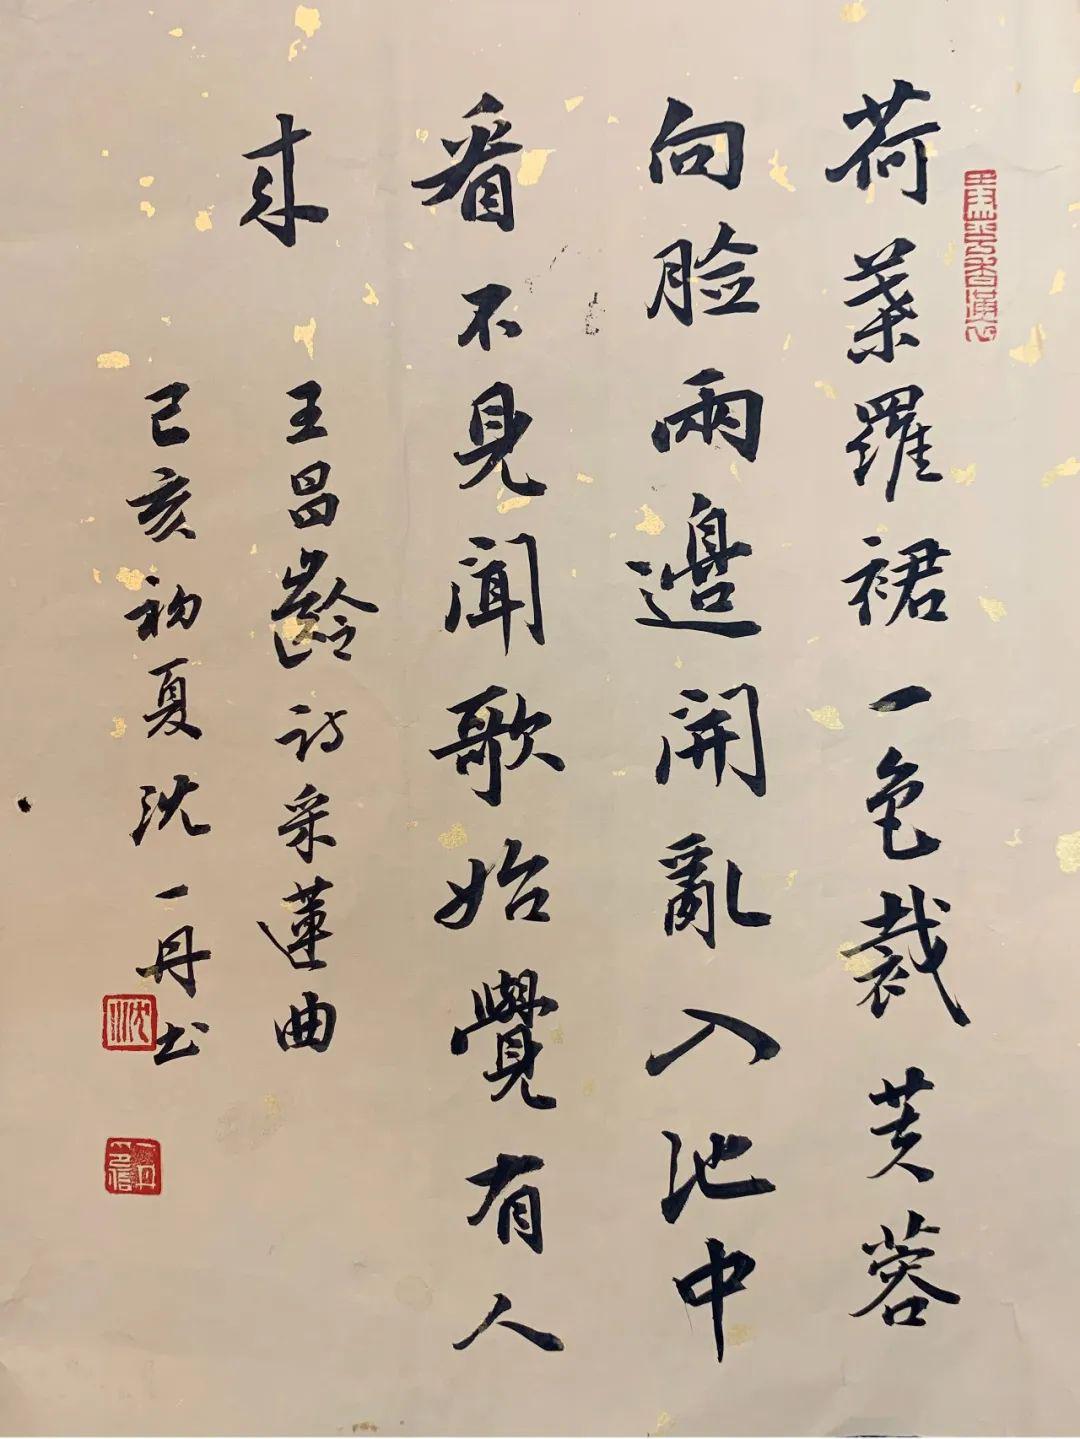 荷葉羅裙一色裁芙蓉
向脸兩邊開亂入池中
看不見聞歌始覺有人
来
王昌齡诗采蓮曲
己亥初夏沈一丹书
沈